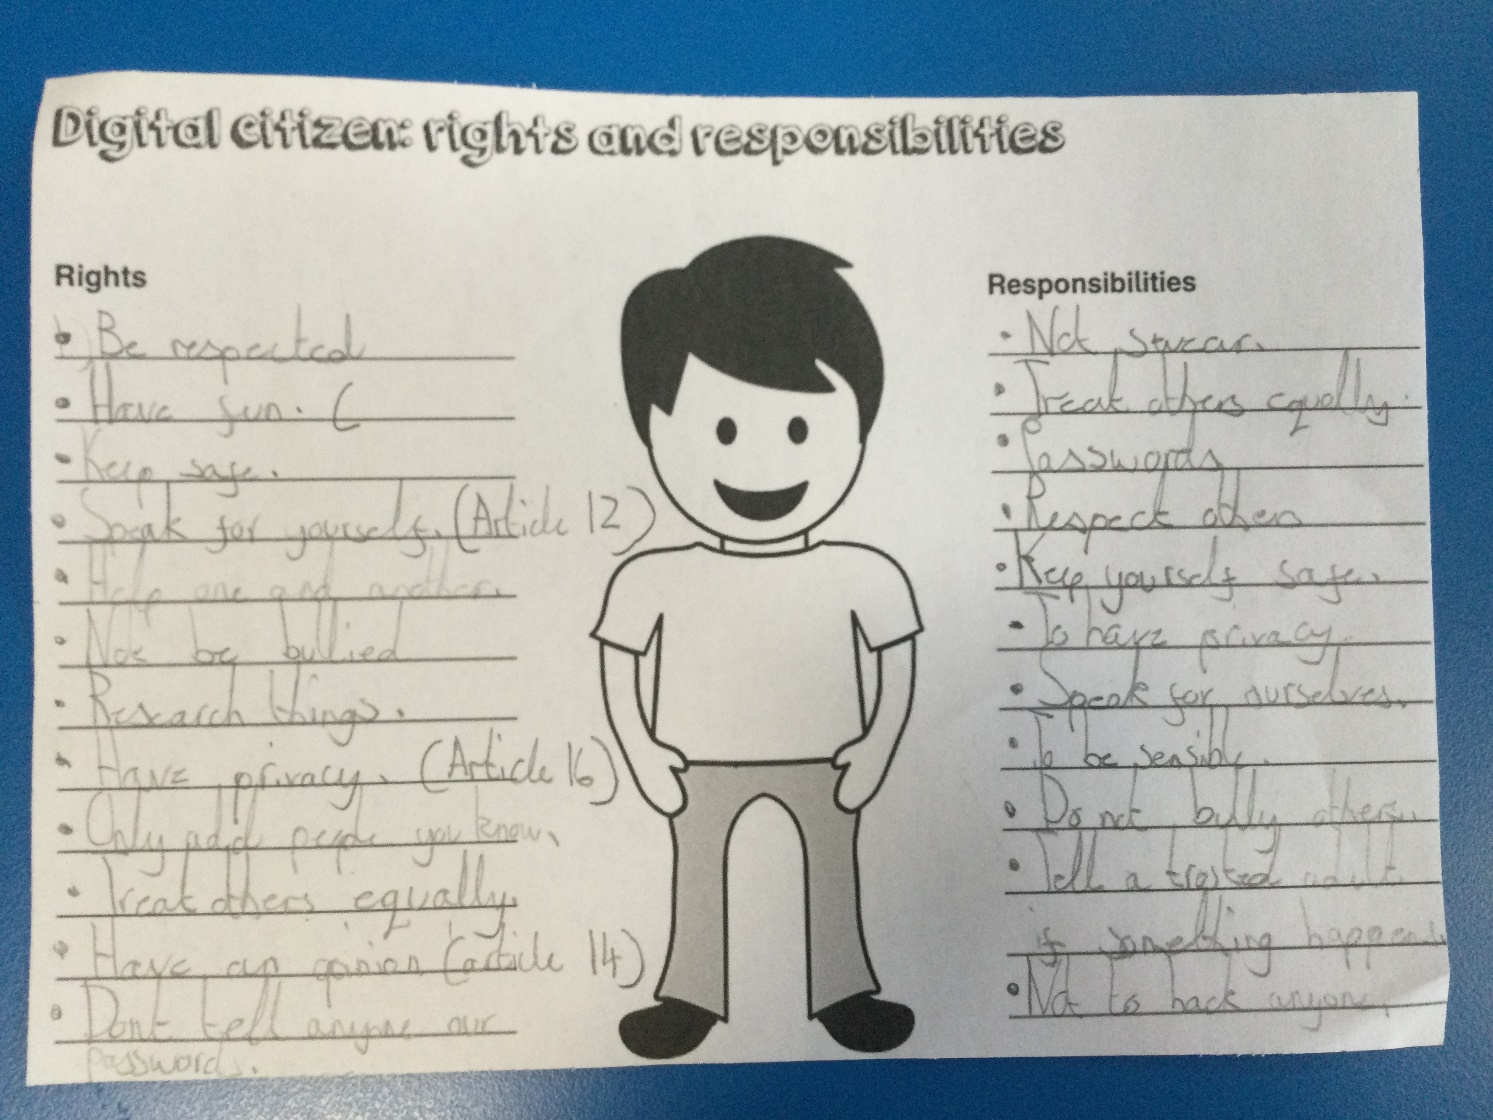 Digital citizen: rights and responsibilities
Rights
• Be respected
• Have fun. (
• Keep safe.
• Speak for yourself. (Article 12)
• Help one and another.
• Not be bullied
• Research things.
• Have privacy. (Article 16)
• Only add people you know.
• Treat others equally.
• Have an opinion (article 14)
• Dont tell anyone our
passwords.
Responsibilities
• Not swear.
• Treat others equally.
• Passwords
• Respect others
• Keep yourself safe.
• To have privacy.
• Speak for ourselves.
• To be sensible.
• Do not bully others.
• Tell a trusted adult
if something happens.
• Not to hack anyone.